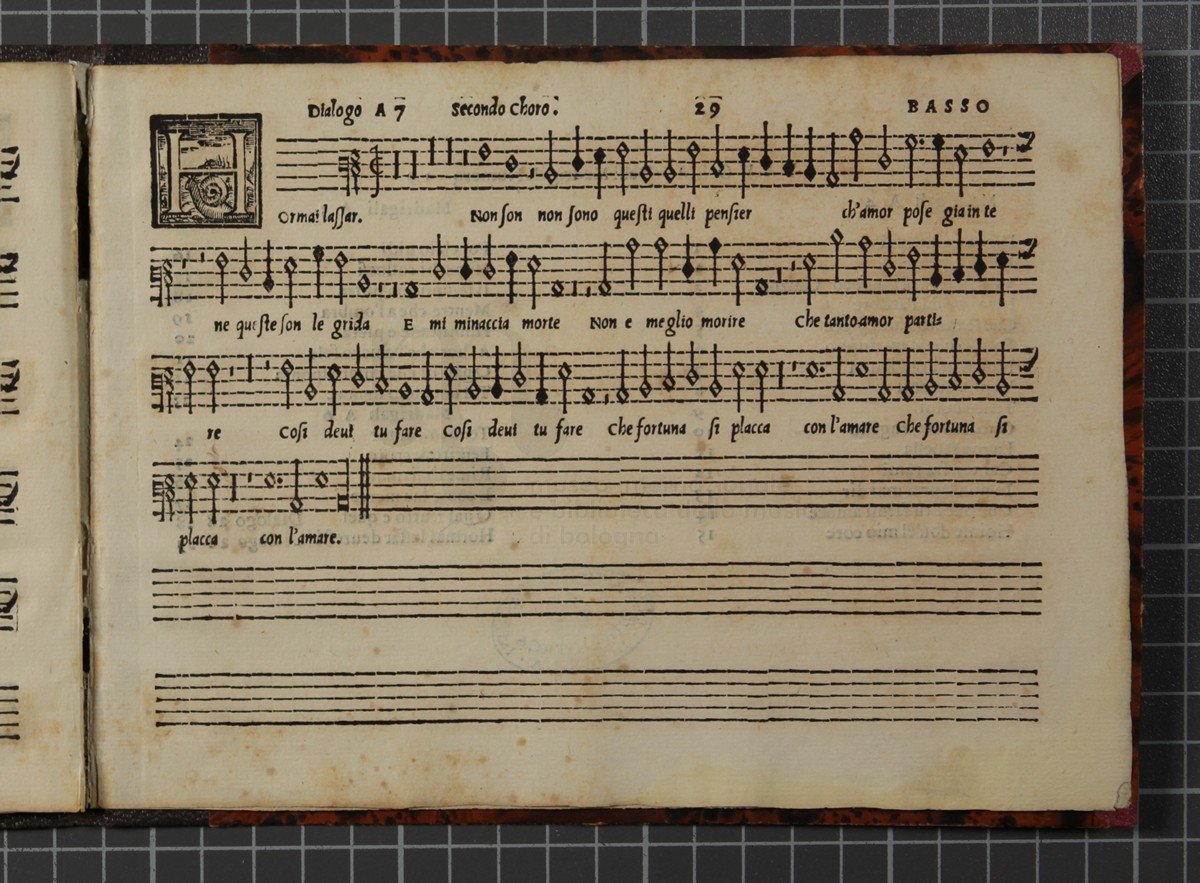 Dialogo A 7 Secondo Choro. 29 BASSO
H
Ormai lassar. Non son non sono questi quelli pensier ch'amor pose gia in te
ne queste son le grida E mi minaccia morte Non e meglio morire Che tanto amor parti=
re Cosi deui tu fare Cosi deui tu fare Che fortuna si placca con l'amare Che fortuna si
placca con l'amare.
di bologna